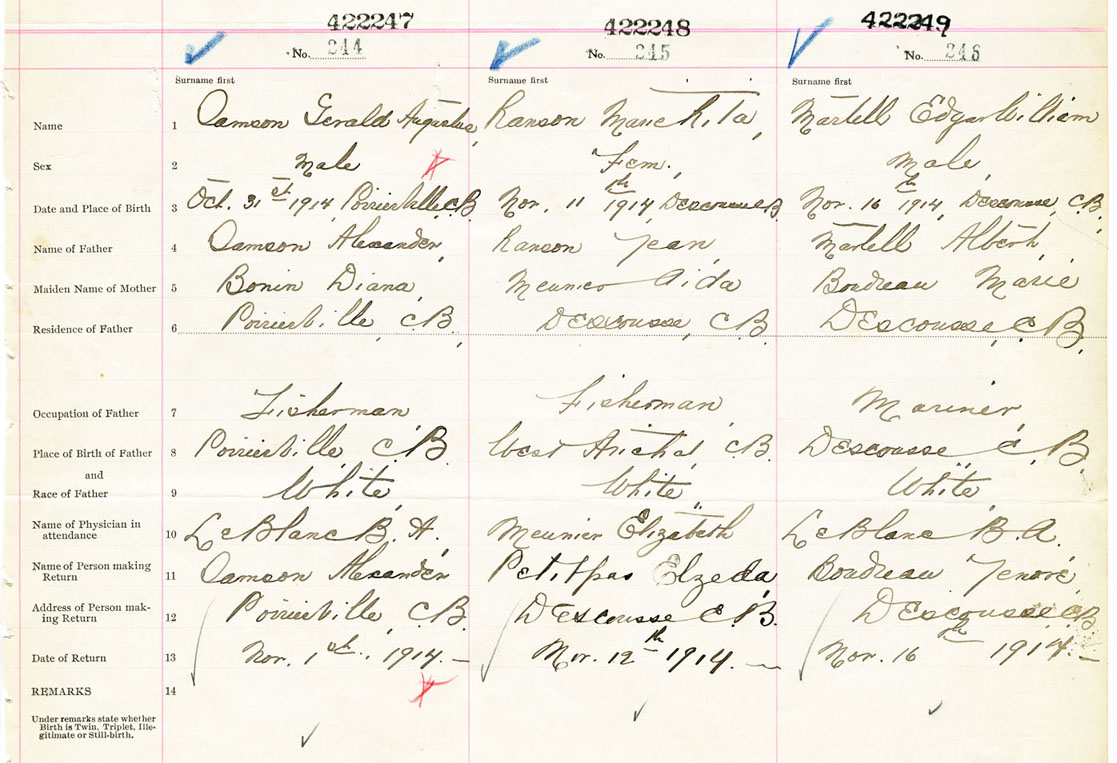 422247 422248 422249
No. 244 No. 245 No. 246
Surname first Surname first Surname first
Name 1 Samson Gerald Augustus, Ranson Marie Rita, Martell Edgar William
Sex 2 Male Fem. Male,
Date and Place of Birth 3 Oct. 31st 1914, Poirierville, CB Nov. 11th 1914, Descousse CB Nov. 16th 1914, Descousse CB,
Name of Father 4 Samson Alexander, Ranson Jean, Martell Albert,
Maiden Name of Mother 5 Bonin Diana, Meunier Aida Boudreau Marie
Residence of Father 6 Poirierville, CB, DEscousse, CB. DEscousse, CB,
Occupation of Father 7 Fisherman Fisherman Mariner,
Place of Birth of Father 8 Poirierville CB. West Arichat, CB. DEscousse CB.
and
Race of Father 9 White, White, White,
Name of Physician in
attendance 10 LeBlanc B. A. Meunier Elizabeth LeBlanc B. A.
Name of Person making
Return 11 Samson Alexander Petitpas Elzeda Boudreau
Address of Person mak-
ing Return 12 Poirierville, CB. DEscousse CB. DEscousse CB
Date of Return 13 Nov. 1st, 1914.— Nov. 12th 1914.— Nov. 16th 1914.—
REMARKS 14
Under remarks state whether
Birth is Twin, Triplet, Ille-
gitimate or Still-birth.